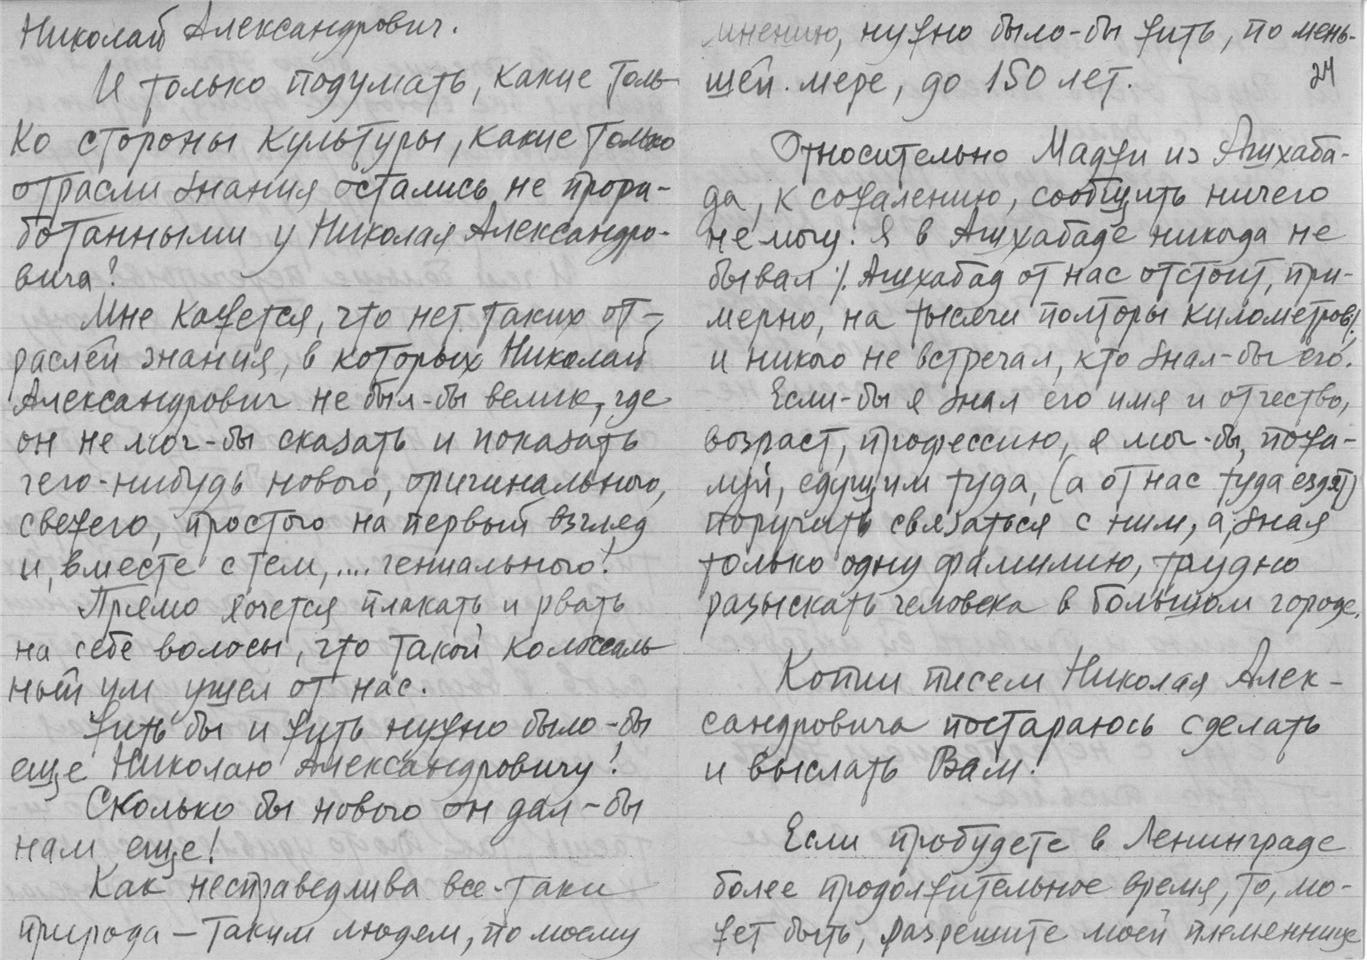 Николай Александрович.
И только подумать, какие толь-
ко стороны культуры, какие только
отрасли знания остались не прора-
ботанными у Николая Александро-
вича?
Мне кажется, что нет таких от-
раслей знания, в которых Николай
Александрович не был-бы велик, где
он не мог-бы сказать и показать
чего-нибудь нового, оригинального,
свежего, простого на первый взгляд
и, вместе с тем, .... гениального!
Прямо хочется плакать и рвать
на себе волосы, что такой колоссаль
ный ум ушел от нас.
Жить бы и жить нужно было-бы
еще Николаю Александровичу!
Сколько бы нового он дал-бы
нам еще!
Как несправедлива все-таки
природа – таким людям, по моему
мнению, нужно было-бы жить, по мень-
шей мере, до 150 лет.
24
Относительно Маджи из Ашхаба-
да, к сожалению, сообщить ничего
не могу. Я в Ашхабаде никогда не
бывал /. Ашхабад от нас отстоит, при-
мерно, на тысячи полторы километров/,
и никого не встречал, кто знал-бы его.
Если-бы я знал его имя и отчество,
возраст, профессию, я мог-бы, пожа-
луй, едущим туда, (а от нас туда ездят)
поручить связаться с ним, а, зная
только одну фамилию, трудно
разыскать человека в большом городе.
Копии писем Николая Алек-
сандровича постараюсь сделать
и выслать Вам.
Если пробудете в Ленинграде
более продолжительное время, то, мо-
жет быть, разрешите моей племяннице